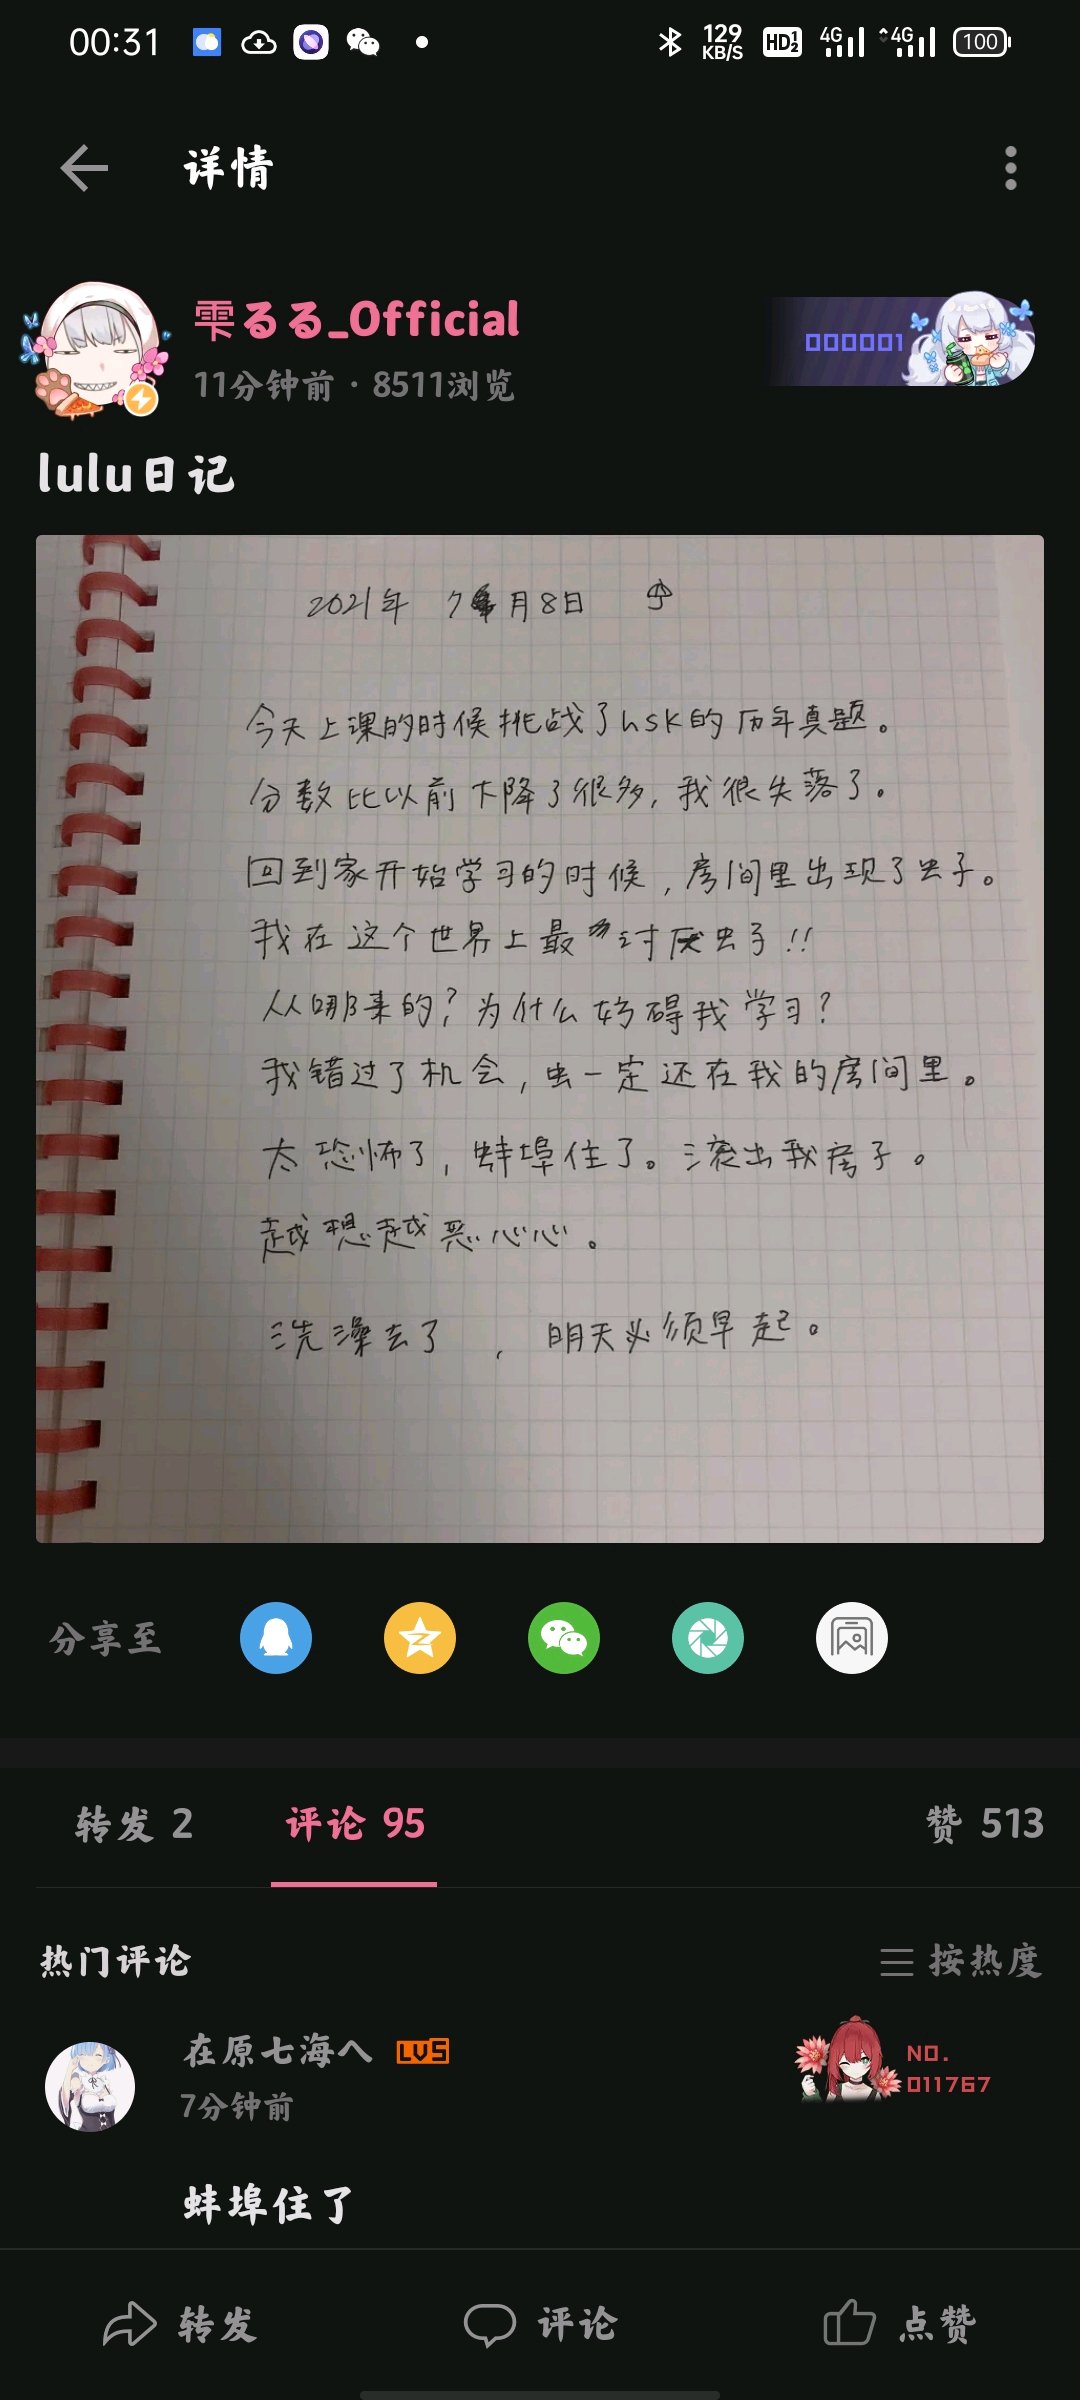 00:31
129
KB/S
HD 1 2
4G
4G
100
详情
雫るる_Official
11分钟前 · 8511浏览
000001
lulu日记
2021年 7月8日
今天上课的时候挑战了hsk的历年真题。
分数比以前下降了很多,我很失落了。
回到家开始学习的时候,房间里出现了虫子。
我在这个世界上最讨厌虫子!!
从哪来的?为什么妨碍我学习?
我错过了机会,虫一定还在我的房间里。
太恐怖了,蚌埠住了。滚出我房子。
越想越恶心心。
洗澡去了 , 明天必须早起。
分享至
转发 2
评论 95
赞 513
热门评论
按热度
在原七海へ LV5
7分钟前
NO.
011767
蚌埠住了
转发
评论
点赞